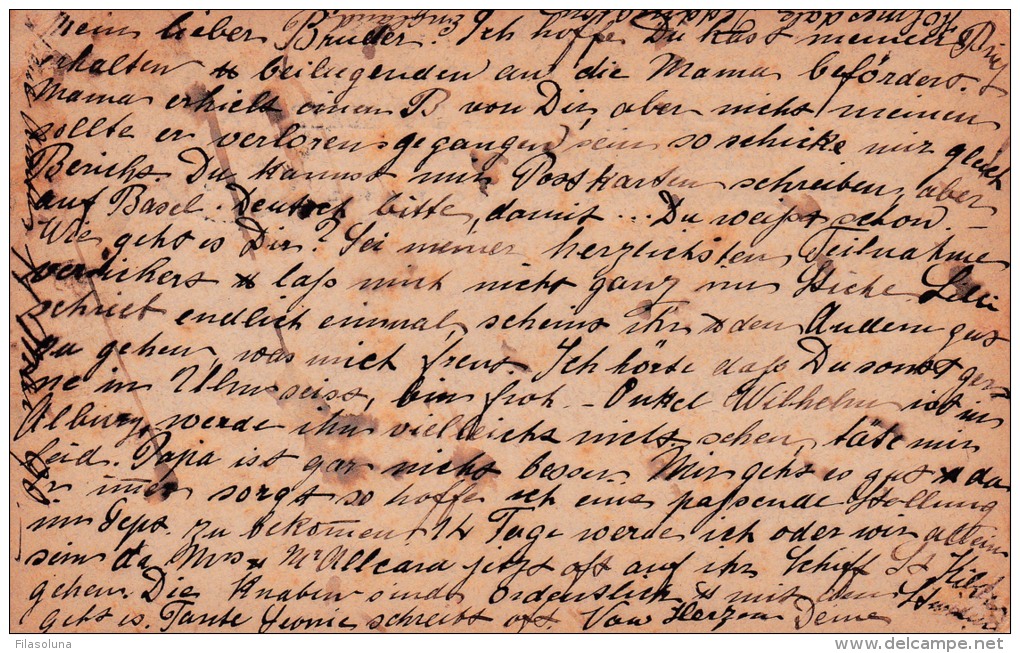 Holmesdale
England
Mein lieber Bruder! Ich hoffe Du hast meinen Brief
erhalten & beiliegenden an die Mama befördert.
Mama erhielt einen B von Dir, aber nicht meinen
sollte er verloren gegangen sein so schicke mir gleich
Bericht Du kannst mir Postkarten schreiben, aber
auf Basel. Deutsch bitte, damit... Du weißt schon. –
Wie geht es Dir? Sei meiner herzlichsten Teilnahme
versichert & laß mich nicht ganz im Stiche.
schrieb endlich einmal, scheint ihr & den Andern gut
zu gehen, was mich freut. Ich hörte daß Du sonst
nie in Ulm seist, bin froh. – Onkel Wilhelm ist in
Albury, werde ihn vielleicht nicht sehen, täte mir
leid. Papa ist gar nicht besser. Mir geht es gut & da
er immer sorgt so hoffe ich eine passende Stellung
im Sept. zu bekommen 14 Tage werde ich oder wir allein
sein da Mrs & Mr jetzt oft auf ihr Schiff St
gehen. Die Knaben sind ordentlich & mit dem
geht es. Tante schreibt oft. Von Herzen Deine
Filasoluna
delcampe.net